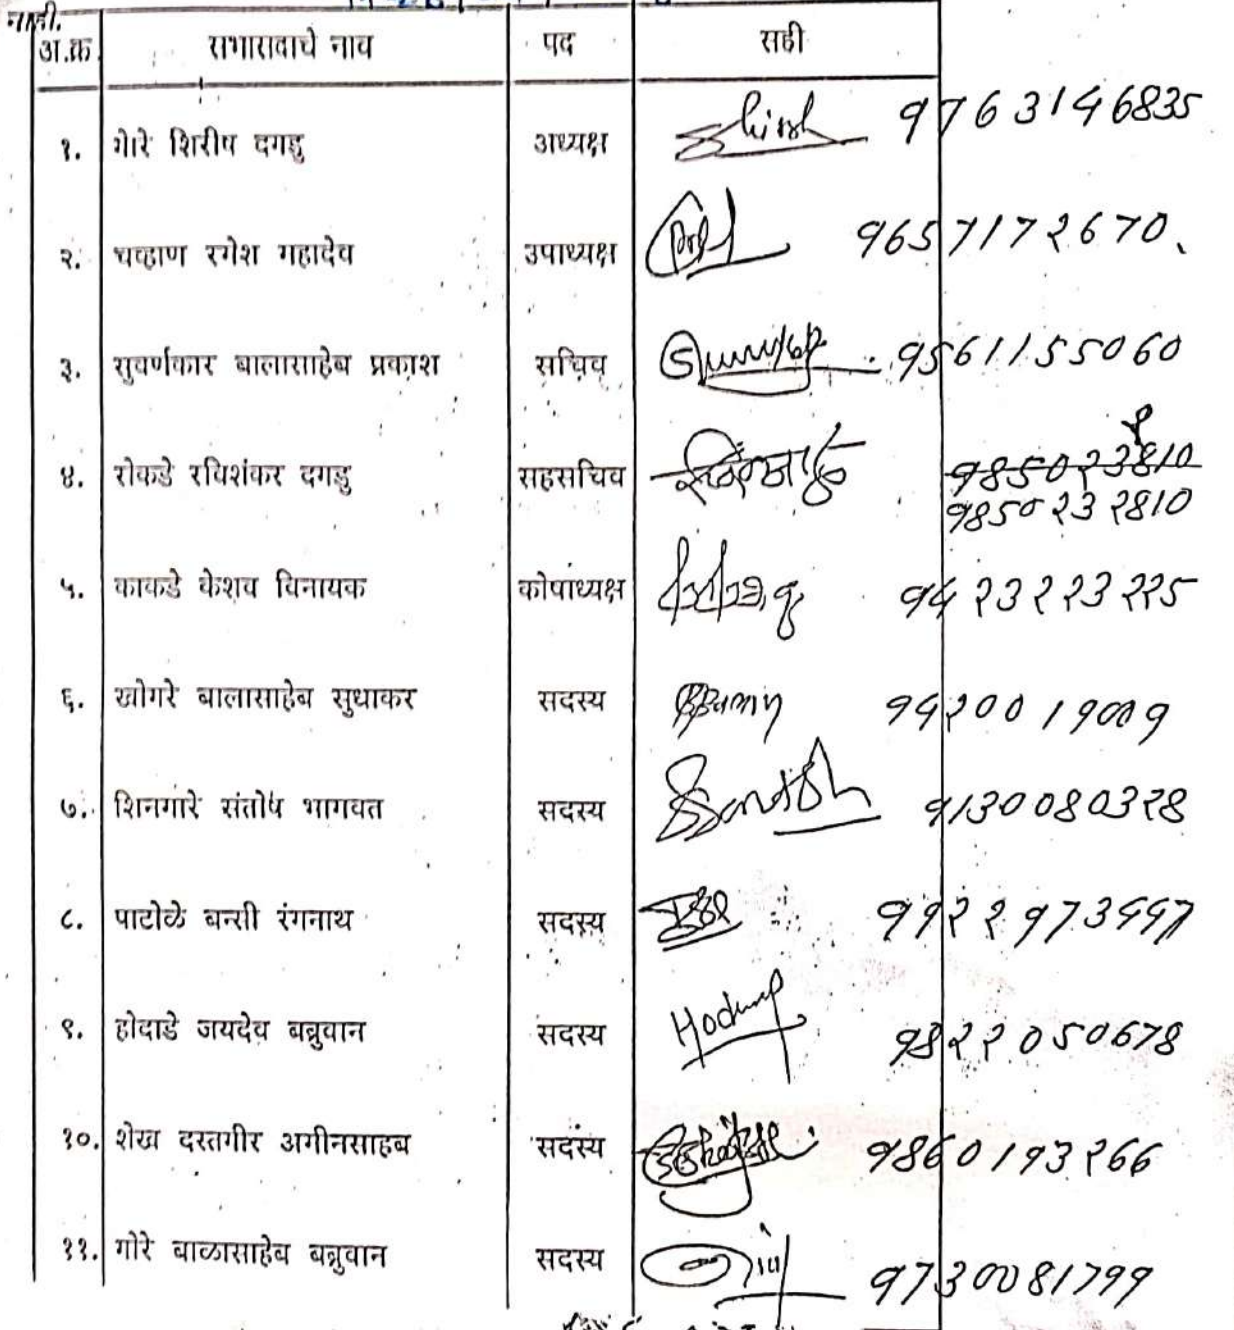 अ.क्र. सभासदाचे नाव पद सही
१. गोरे शिरीष दगडु अध्यक्ष 9763146835
२. चव्हाण रमेश महादेव उपाध्यक्ष 9657172670.
३. सुवर्णकार बालासाहेब प्रकाश सचिव 9561155060
४. रोकडे रविशंकर दगडु सहसचिव
9850232810
५. काकडे केशव विनायक कोषाध्यक्ष 9423223225
६. खोगरे बालासाहेब सुधाकर सदस्य
७. शिनगारे संतोष भागवत सदस्य Santosh 9130080328
८. पाटोळे बन्सी रंगनाथ सदस्य
९. होदाडे जयदेव बब्रुवान सदस्य 9822050678
१०. शेख दस्तगीर अमीनसाहब सदस्य 9860193266
११. गोरे बाळासाहेब बब्रुवान सदस्य 9730081799